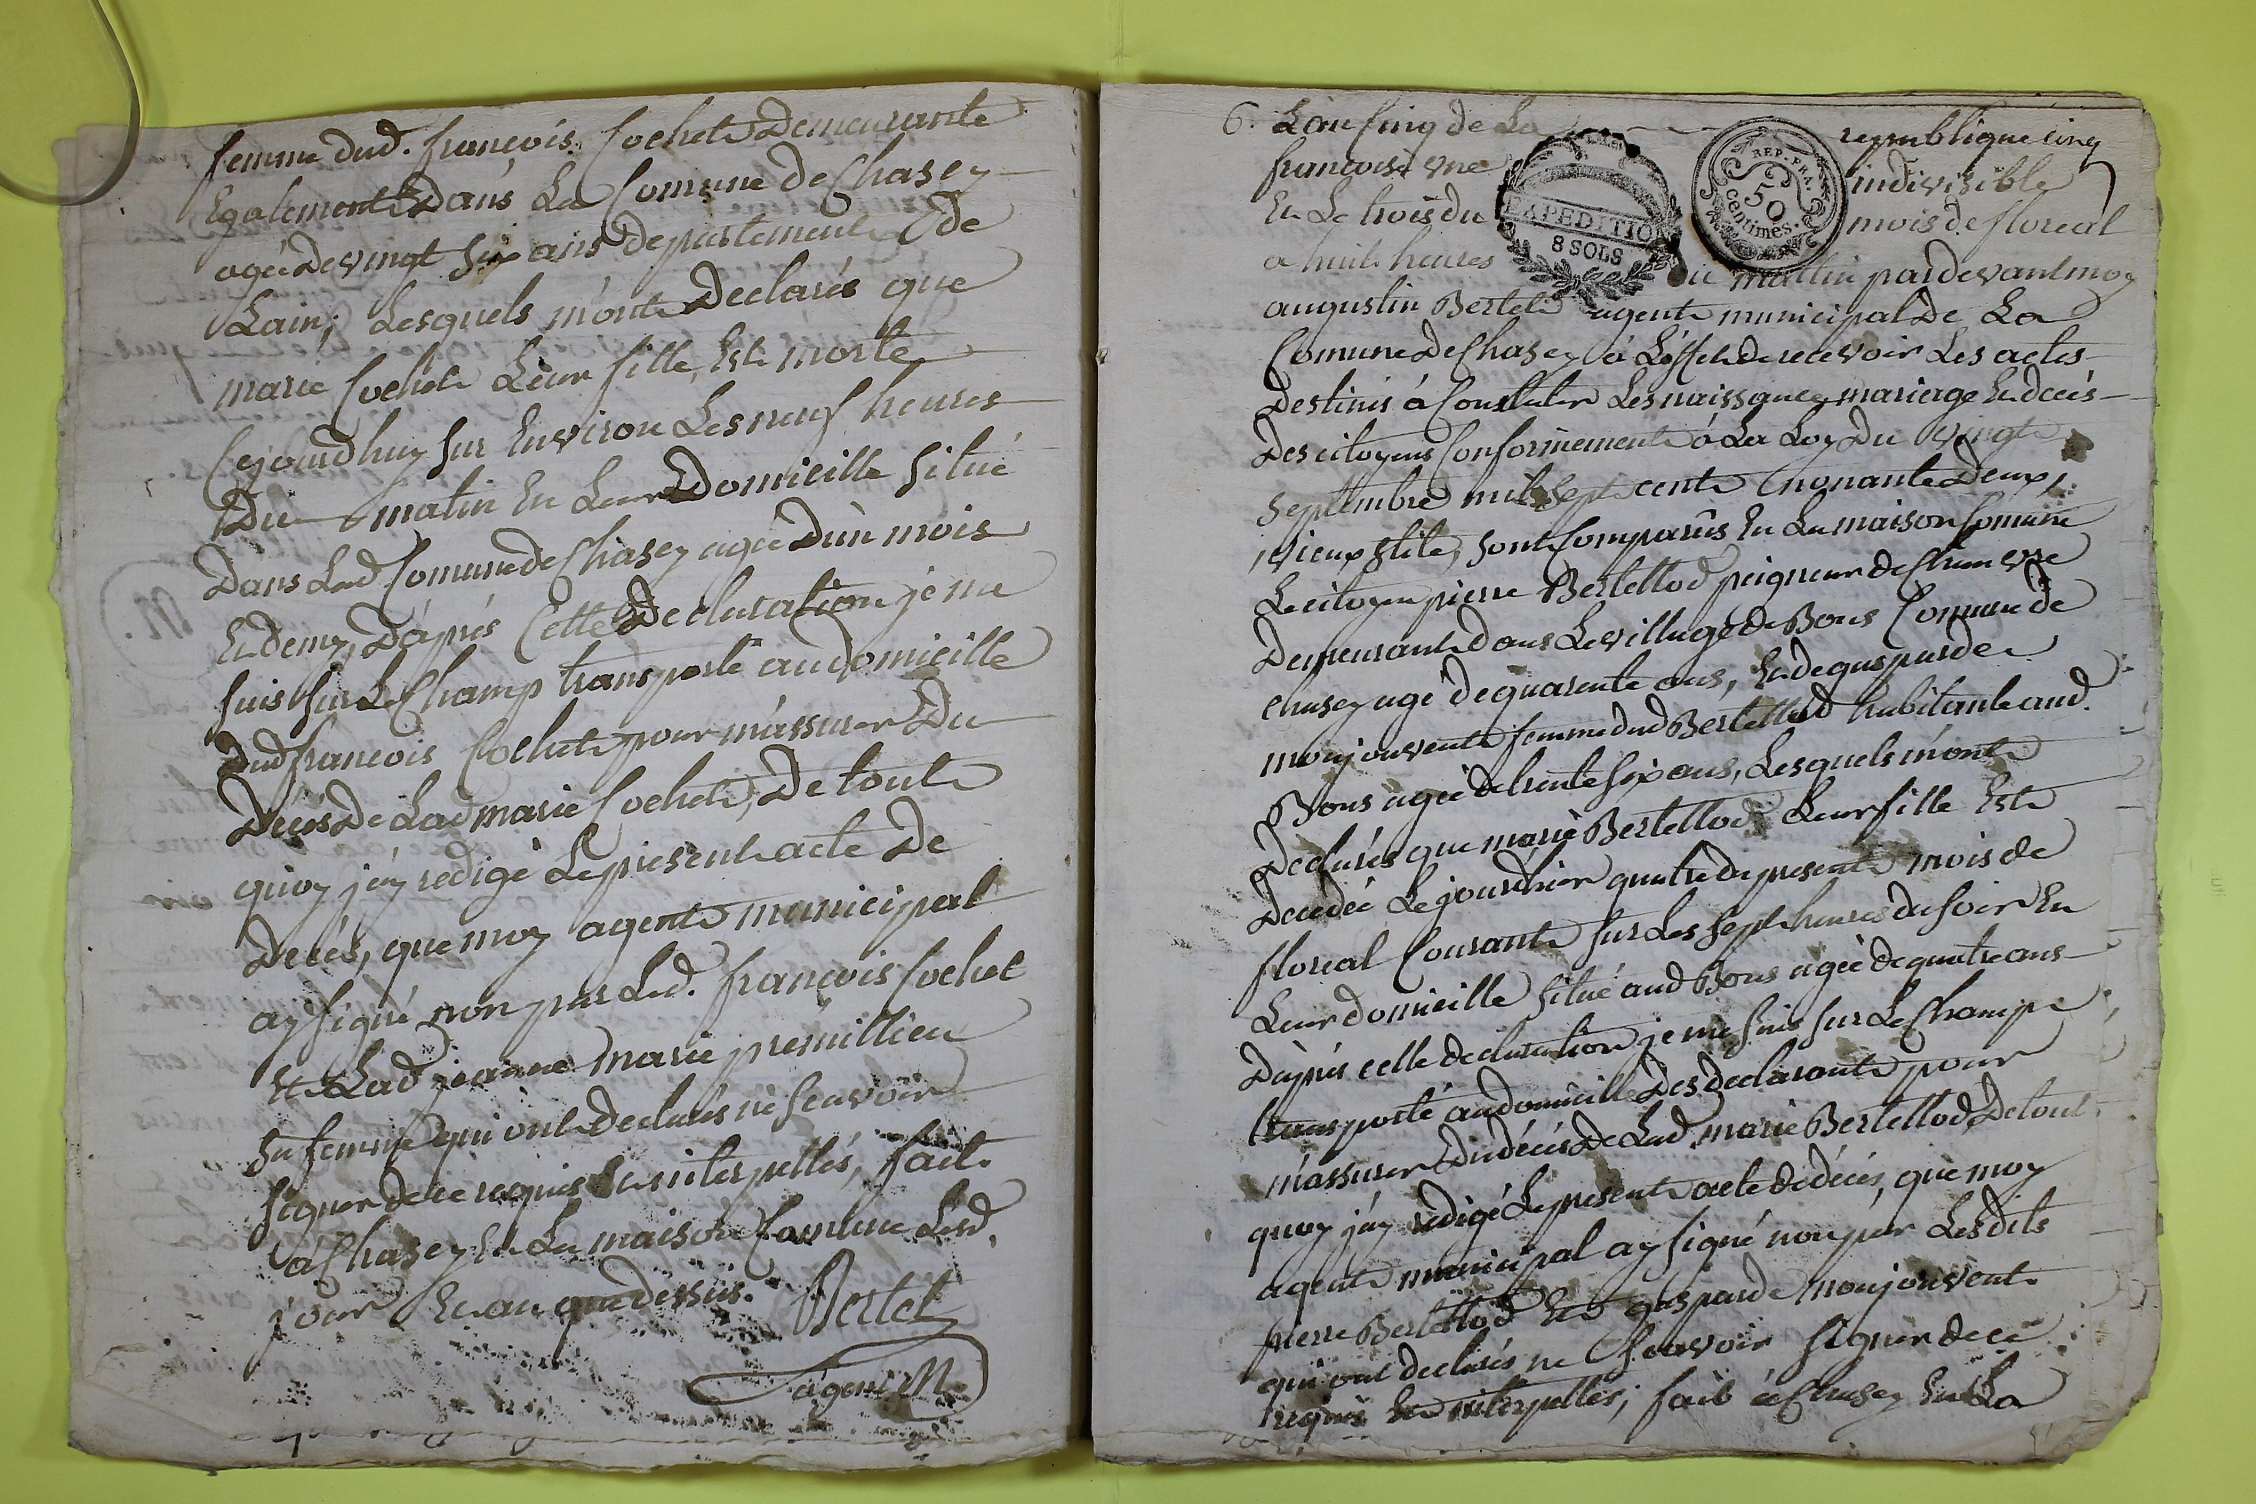 femme dud. françois Cochet Demeurante
Egalement Dans La Comune de Chasey
agée De vingt six ans departement de
Lain; Lesquels m'ont Declarés que
marie Cochet Leur fille, Est morte
Cejourdhuy sur Environ Les neuf heures
Du matin En Leur Domicille situé
Dans Lad Comune de Chasey agée D'un mois
Et demy, D'aprés Cette Declaration je me
suis sur Le Champ transporté au domicille
Dud françois Cochet pour m'assurer Du
Decés De Lad marie Cochet, De tout
quoy j'ay redigé Le present acte De
Decés, que moy agent municipal
ay signé non par Led. françois Cochet
Et Lad jeanne marie premillieu
sa femme qui ont declarés ne scavoir
signer de ce requis Et interpellés, fait
a Chasey En La maison Comune Lesd.
jour Et an que dessus. Bertet
agent M.
6. L'an Cinq de La republique cinq
françoise une indivisible
Et Le trois du mois de floreal
a huit heures du mattin pardevant moy
augustin Bertet agent municipal De La
Comune De Chasey à L'éffet de recevoir Les actes
Destinés á Constater Les naissances mariage Et decés
Des citoyens Conformement á La Loy Du vingt
septembre mil sept cent nonante Deux,
vieux stile, sont Comparûs En La maison Comune
Le citoyen pierre Bertellod peigneur de Chanvre
Demeurant dans Le village de Bons Comune de
chasey agé de quarente ans, Et de gasparde
monjouvent femme dud Bertellod habitante aud.
Bons agée de trente six ans, Lesquels m'ont
Declarés que marie Bertellod Leur fille Est
Decedée Le jourdhier quatre du present mois de
floreal Courant sur Les sept heures du soir En
Leur domicille situé aud Bons agée de quatre ans
D'aprés cette declaration je me suis sur Le Champ
transporté au domicille Des declarants pour
m'assurer Du décés De Lad marie Bertellod, De tout
quoy j'ay redigé Le present acte de décés, que moy
agent municipal ay signé non par Lesdits
pierre Bertellod Et gasparde monjouvent
qui ont declarés ne scavoir signer de ce
requis Et interpellés; fait á Chasey En La
EXPEDITION
8 SOLS
REP. FRA.
50
centimes.